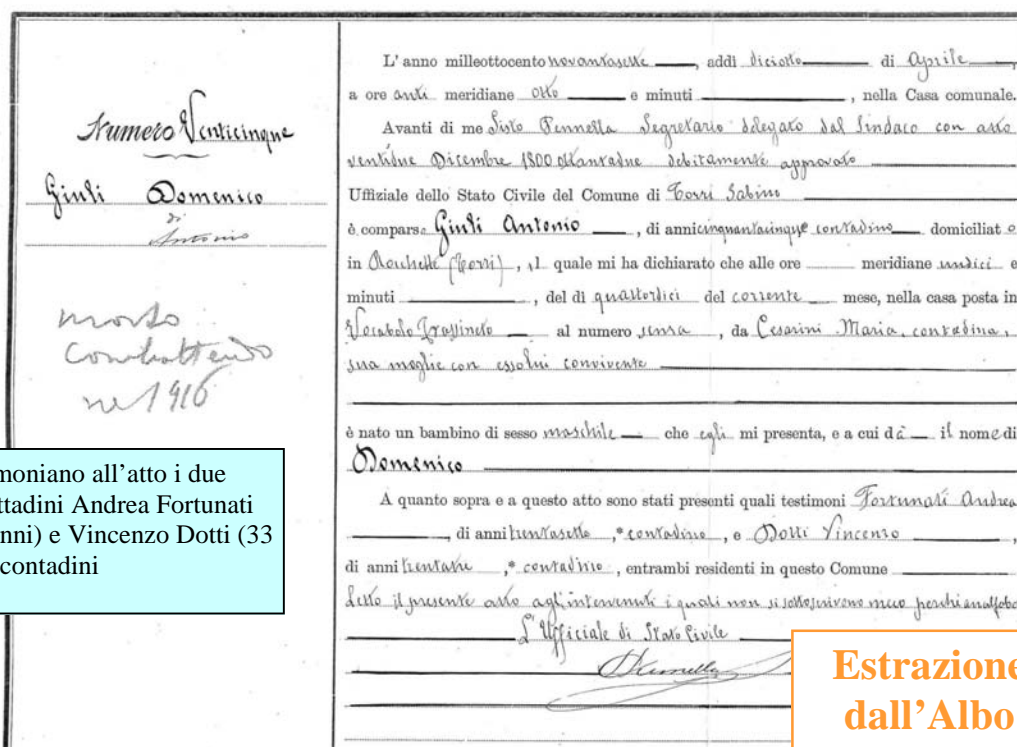 Numero Venticinque
Giuli Domenico
di
Antonio
morto
combattendo
nel 1916
moniano all'atto i due
ttadini Andrea Fortunati
nni) e Vincenzo Dotti (33
contadini
L' anno milleottocento novantasette, addì diciotto di Aprile,
a ore anti meridiane otto e minuti , nella Casa comunale.
Avanti di me Sisto Pennella Segretario delegato dal Sindaco con atto
ventidue Dicembre 1800 ottantadue debitamente approvato
Uffiziale dello Stato Civile del Comune di Torri Sabina
è comparso Giuli Antonio, di anni cinquantacinque contadino domiciliato
in Rocchette (Torri), il quale mi ha dichiarato che alle ore meridiane undici e
minuti , del dì quattordici del corrente mese, nella casa posta in
Vocabolo Frassineto al numero senza, da Cesarini Maria, contadina,
sua moglie con essolui convivente
è nato un bambino di sesso maschile che egli mi presenta, e a cui dà il nome di
Domenico
A quanto sopra e a questo atto sono stati presenti quali testimoni Fortunati Andrea
, di anni trentasette,* contadino, e Dotti Vincenzo ,
di anni trentatre,* contadino, entrambi residenti in questo Comune
Letto il presente atto agl'intervenuti i quali non si sottoscrivono meco perchè analfabe
L'Ufficiale di Stato Civile
Estrazione
dall'Albo